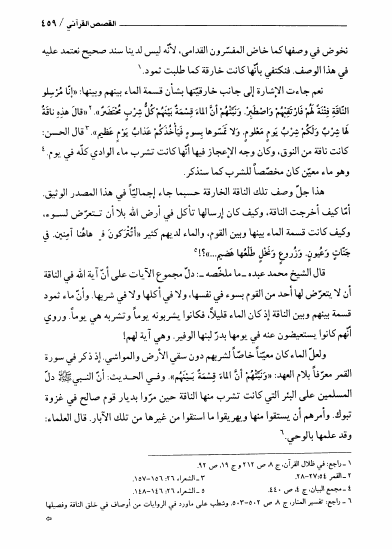 القصص القرآني / ٤٥٩
نخوض في وصفها كما خاض المفسّرون القدامى، لأنّه ليس لدينا سند صحيح نعتمد عليه
في هذا الوصف. فنكتفي بأنّها كانت خارقة كما طلبت ثمود.١
نعم جاءت الإشارة إلى جانب خارقيّتها بشأن قسمة الماء بينهم وبينها: «إنّا مُرسِلو
النّاقَةِ فِتْنَةً لَهُمْ فَارْتَقِبْهُمْ وَاصْطَبِرْ. وَنَبِّئْهُمْ أَنَّ الْمَاءَ قِسْمَةٌ بَيْنَهُمْ كُلُّ شِرْبٍ مُحْتَضَرٌ».٢ «قَالَ هَذِهِ نَاقَةٌ
لَهَا شِرْبٌ وَلَكُمْ شِرْبُ يَوْمٍ مَعْلُومٍ. وَلَا تَمَسُّوهَا بِسُوءٍ فَيَأْخُذَكُمْ عَذَابُ يَوْمٍ عَظِيمٍ».٣ قال الحسن:
كانت ناقة من النوق، وكان وجه الإعجاز فيها أنّها كانت تشرب ماء الوادي كلّه في يوم.٤
وهو ماء معيّن كان مخصّصاً للشرب كما سنذكر.
هذا جلّ وصف تلك الناقة الخارقة حسبما جاء إجماليّاً في هذا المصدر الوثيق.
أمّا كيف أخرجت الناقة، وكيف كان إرسالها تأكل في أرض الله بلا أن تتعرّض لسوء،
وكيف كانت قسمة الماء بينها وبين القوم، والماء لديهم كثير «أَتُتْرَكُونَ فِي مَا هَاهُنَا آمِنِينَ. فِي
جَنَّاتٍ وَعُيُونٍ. وَزُرُوعٍ وَنَخْلٍ طَلْعُهَا هَضِيمٌ...»؟!٥
قال الشيخ محمد عبده ـ ما ملخّصه ـ: دلّ مجموع الآيات على أنّ آية الله في الناقة
أن لا يتعرّض لها أحد من القوم بسوء في نفسها، ولا في أكلها ولا في شربها. وأنّ ماء ثمود
قسمة بينهم وبين الناقة إذ كان الماء قليلاً، فكانوا يشربونه يوماً وتشربه هي يوماً. وروي
أنّهم كانوا يستعيضون عنه في يومها بدرّ لبنها الوفير. وهي آية لهم!
ولعلّ الماء كان معيّناً خاصّاً لشربهم دون سقي الأرض والمواشي. إذ ذكر في سورة
القمر معرّفاً بلام العهد: «وَنَبِّئْهُمْ أَنَّ الْمَاءَ قِسْمَةٌ بَيْنَهُمْ». وفي الحديث: أنّ النبيّ ﷺ دلّ
المسلمين على البئر التي كانت تشرب منها الناقة حين مرّوا بديار قوم صالح في غزوة
تبوك. وأمرهم أن يستقوا منها ويهريقوا ما استقوا من غيرها من تلك الآبار. قال العلماء:
وقد علمها بالوحي.٦
١ ـ راجع: في ظلال القرآن، ج ٨، ص ٢١٢ و ج ١٩، ص ٩٢.
٢ ـ القمر ٥٤: ٢٧-٢٨. ٣ ـ الشعراء ٢٦: ١٥٦-١٥٧.
٤ ـ مجمع البيان، ج ٤، ص ٤٤٠. ٥ ـ الشعراء ٢٦: ١٤٦-١٤٨.
٦ ـ راجع: تفسير المنار، ج ٨، ص ٥٠٢-٥٠٣. وشطب على ماورد في الروايات من أوصاف في خلق الناقة وفصيلها